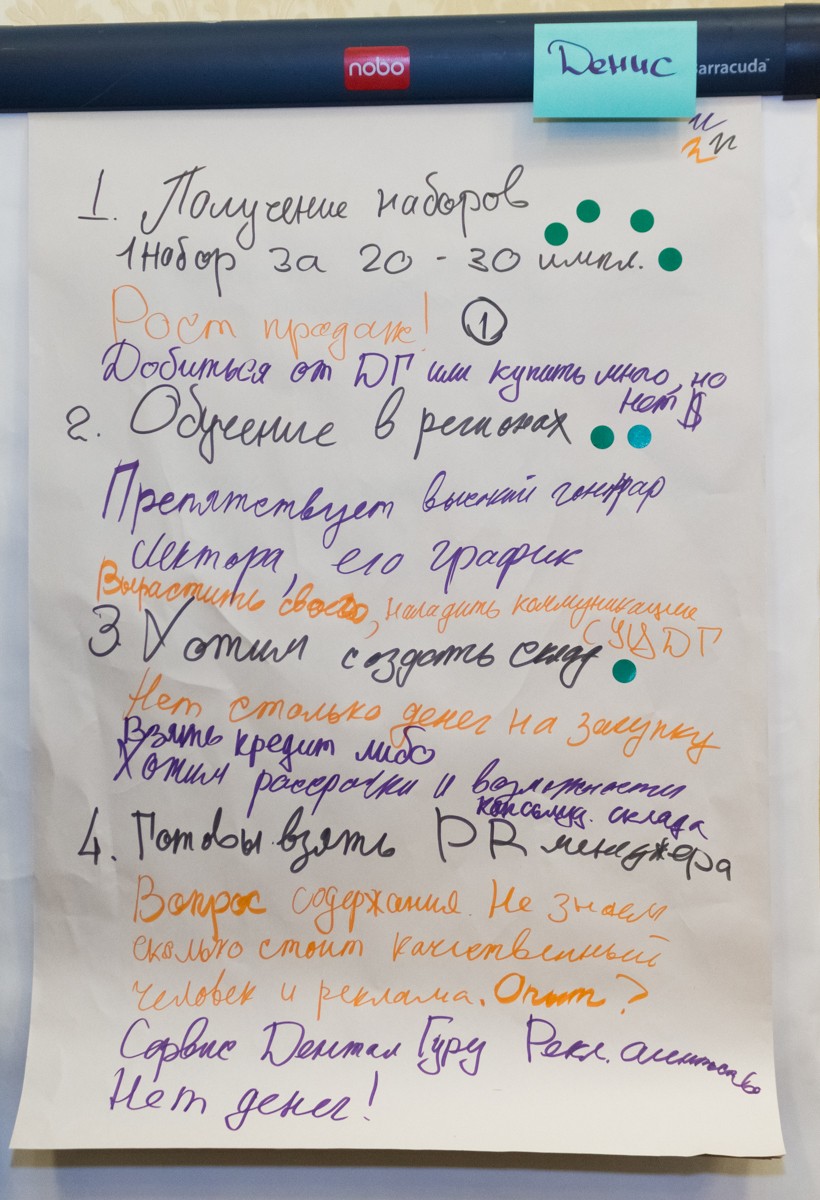 nobo
Денис
Barracuda
1. Получение наборов
1 набор за 20 - 30 импл.
Рост продаж! 1
Добиться от ДГ или купить много, но
нет $
2. Обучение в регионах
Препятствует высокий гонорар
лектора, его график
Вырастить своего, наладить коммуникацию
с УЦ ДГ
3. Хотим создать склад
Нет столько денег на закупку
Взять кредит либо
Хотим рассрочки и возможности
консигн. склада
4. Готовы взять PR менеджера
Вопрос содержания. Не знаем
сколько стоит качественный
человек и реклама. Опыт?
Сервис Дентал Гуру Рекл. агентство
Нет денег!